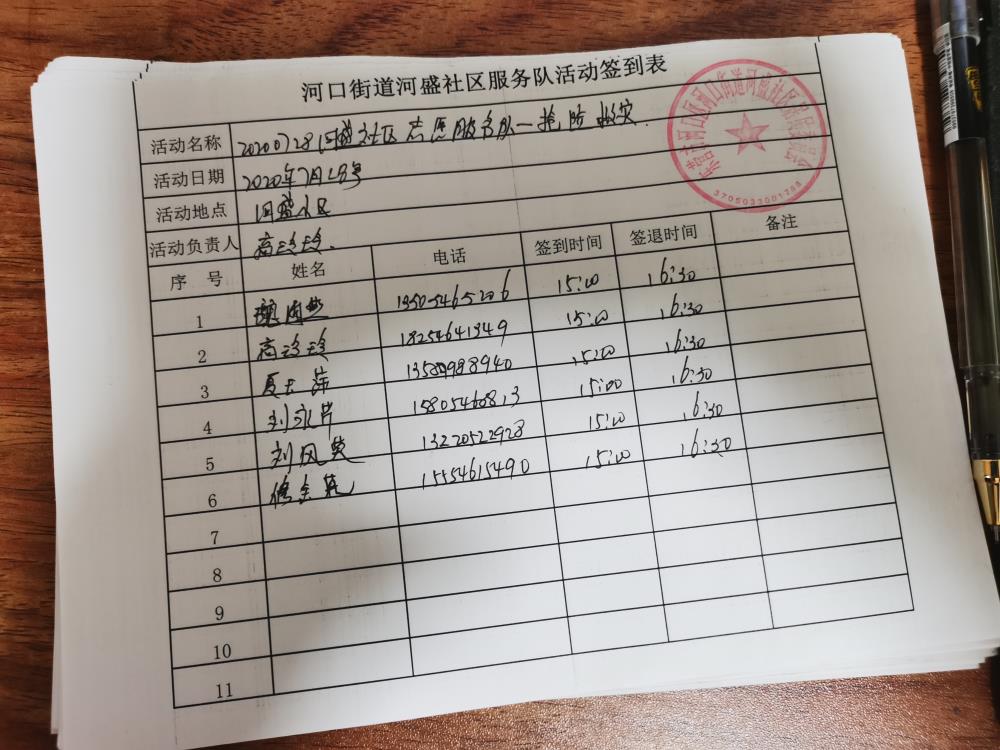 河口街道河盛社区服务队活动签到表
活动名称 20200728河盛社区志愿服务队一抢险救灾
活动日期 2020年7月28号
活动地点 河盛社区
活动负责人 高玲玲
序号 姓名 电话 签到时间 签退时间 备注
1 13505465206 15:00 16:30
2 高玲玲 18254641349 15:00 16:30
3 13589988940 15:00 16:30
4 刘永芹 15805460813 15:00 16:30
5 刘风英 13220522928 15:00 16:30
6 15554615490 15:00 16:30
7
8
9
10
11
3705033001288